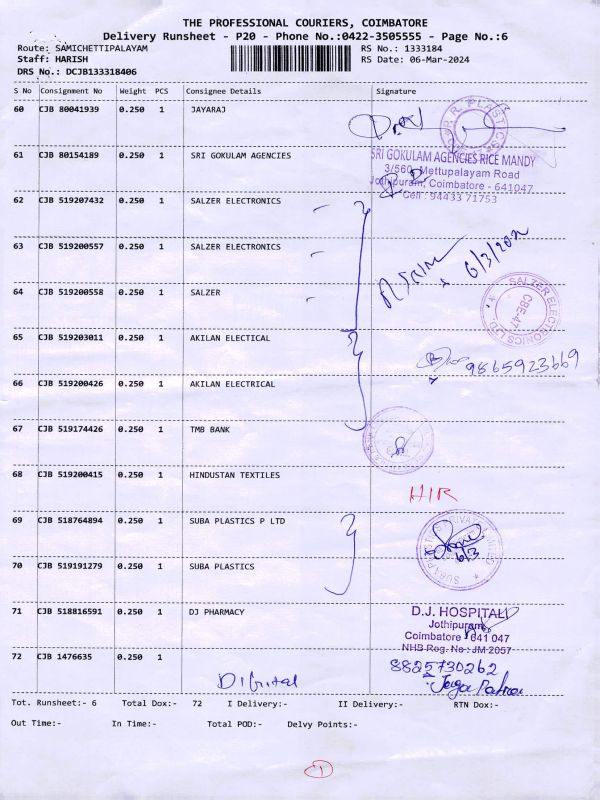 THE PROFESSIONAL COURIERS, COIMBATORE
Delivery Runsheet - P20 - Phone No.:0422-3505555 - Page No.:6
Route: SAMICHETTIPALAYAM RS No.: 1333184
Staff: HARISH RS Date: 06-Mar-2024
DRS No.: DCJB133318406
S No Consignment No Weight PCS Consignee Details Signature
60 CJB 80041939 0.250 1 JAYARAJ
R.R. PLASTICS
61 CJB 80154189 0.250 1 SRI GOKULAM AGENCIES
SRI GOKULAM AGENCIES RICE MANDY
3/560, Mettupalayam Road
Jothipuram, Coimbatore - 641047
Cell : 94433 71753
62 CJB 519207432 0.250 1 SALZER ELECTRONICS
63 CJB 519200557 0.250 1 SALZER ELECTRONICS
64 CJB 519200558 0.250 1 SALZER
SALZER ELECTRONICS LTD
CBE-47
65 CJB 519203011 0.250 1 AKILAN ELECTICAL
9865923669
66 CJB 519200426 0.250 1 AKILAN ELECTRICAL
67 CJB 519174426 0.250 1 TMB BANK
68 CJB 519200415 0.250 1 HINDUSTAN TEXTILES
HIR
69 CJB 518764894 0.250 1 SUBA PLASTICS P LTD
6/3
70 CJB 519191279 0.250 1 SUBA PLASTICS
71 CJB 518816591 0.250 1 DJ PHARMACY
D.J. HOSPITAL
Jothipuram
Coimbatore - 641 047
NHB Reg. No : JM 2057
72 CJB 1476635 0.250 1
8825730262
Digital
Tot. Runsheet:- 6 Total Dox:- 72 I Delivery:- II Delivery:- RTN Dox:-
Out Time:- In Time:- Total POD:- Delvy Points:-
1